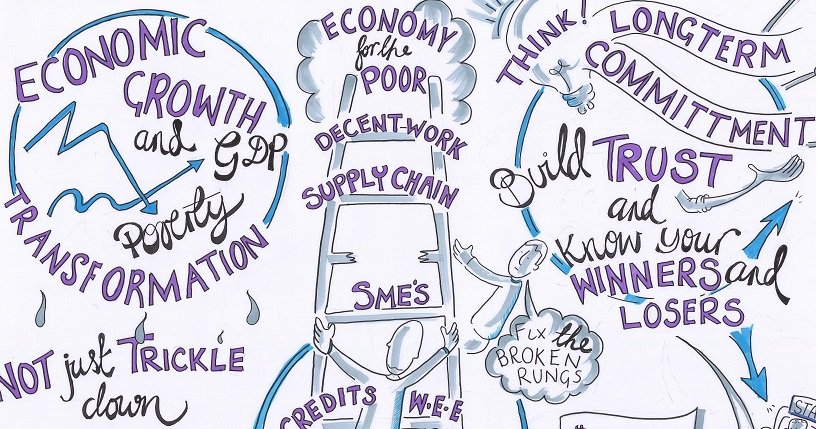 ECONOMIC
GROWTH
and GDP
Poverty
TRANSFORMATION
NOT just TRICKLE
down
ECONOMY
for the
POOR
DECENT WORK
SUPPLY CHAIN
SME'S
CREDITS W.E.E
FIX the
BROKEN
RUNGS
THINK! LONGTERM
COMMITTMENT
Build TRUST
and
Know your
WINNERS and
LOSERS
STA